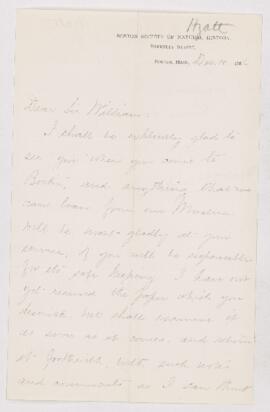 Hyatt
BOSTON SOCIETY OF NATURAL HISTORY,
BERKELEY STREET.
BOSTON, MASS., Dec. 188
Dear Sir William:
I shall be extremely glad to
see you when you come to
Boston, and anything that we
can loan from our Museum
will be most gladly at your
service, if you will be responsible
for its safe keeping. I have not
yet received the paper which you
but shall examine it
as soon as it comes, and return
it forthwith, with such notes
and comments as I can